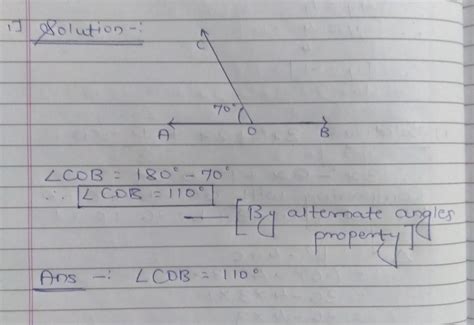 1] Solution -:
C
70°
A O B
∠COB = 180° - 70°
∴ ∠COB = 110°
— [By alternate angles
property]
Ans -: ∠COB = 110°